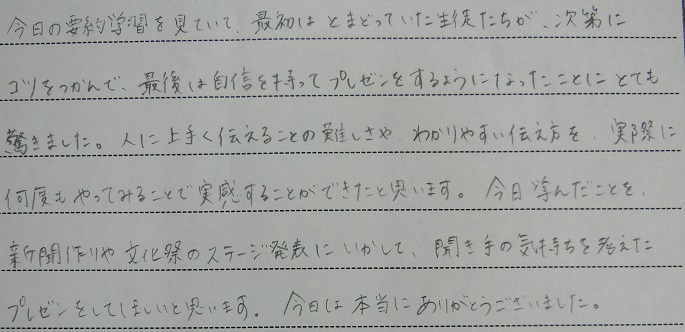 今日の要約学習を見ていて、最初はとまどっていた生徒たちが、次第に
コツをつかんで、最後は自信を持ってプレゼンをするようになったことにとても
驚きました。人に上手く伝えることの難しさや、わかりやすい伝え方を、実際に
何度もやってみることで実感することができたと思います。今日学んだことを、
新聞作りや文化祭のステージ発表にいかして、聞き手の気持ちを考えた
プレゼンをしてほしいと思います。今日は本当にありがとうございました。